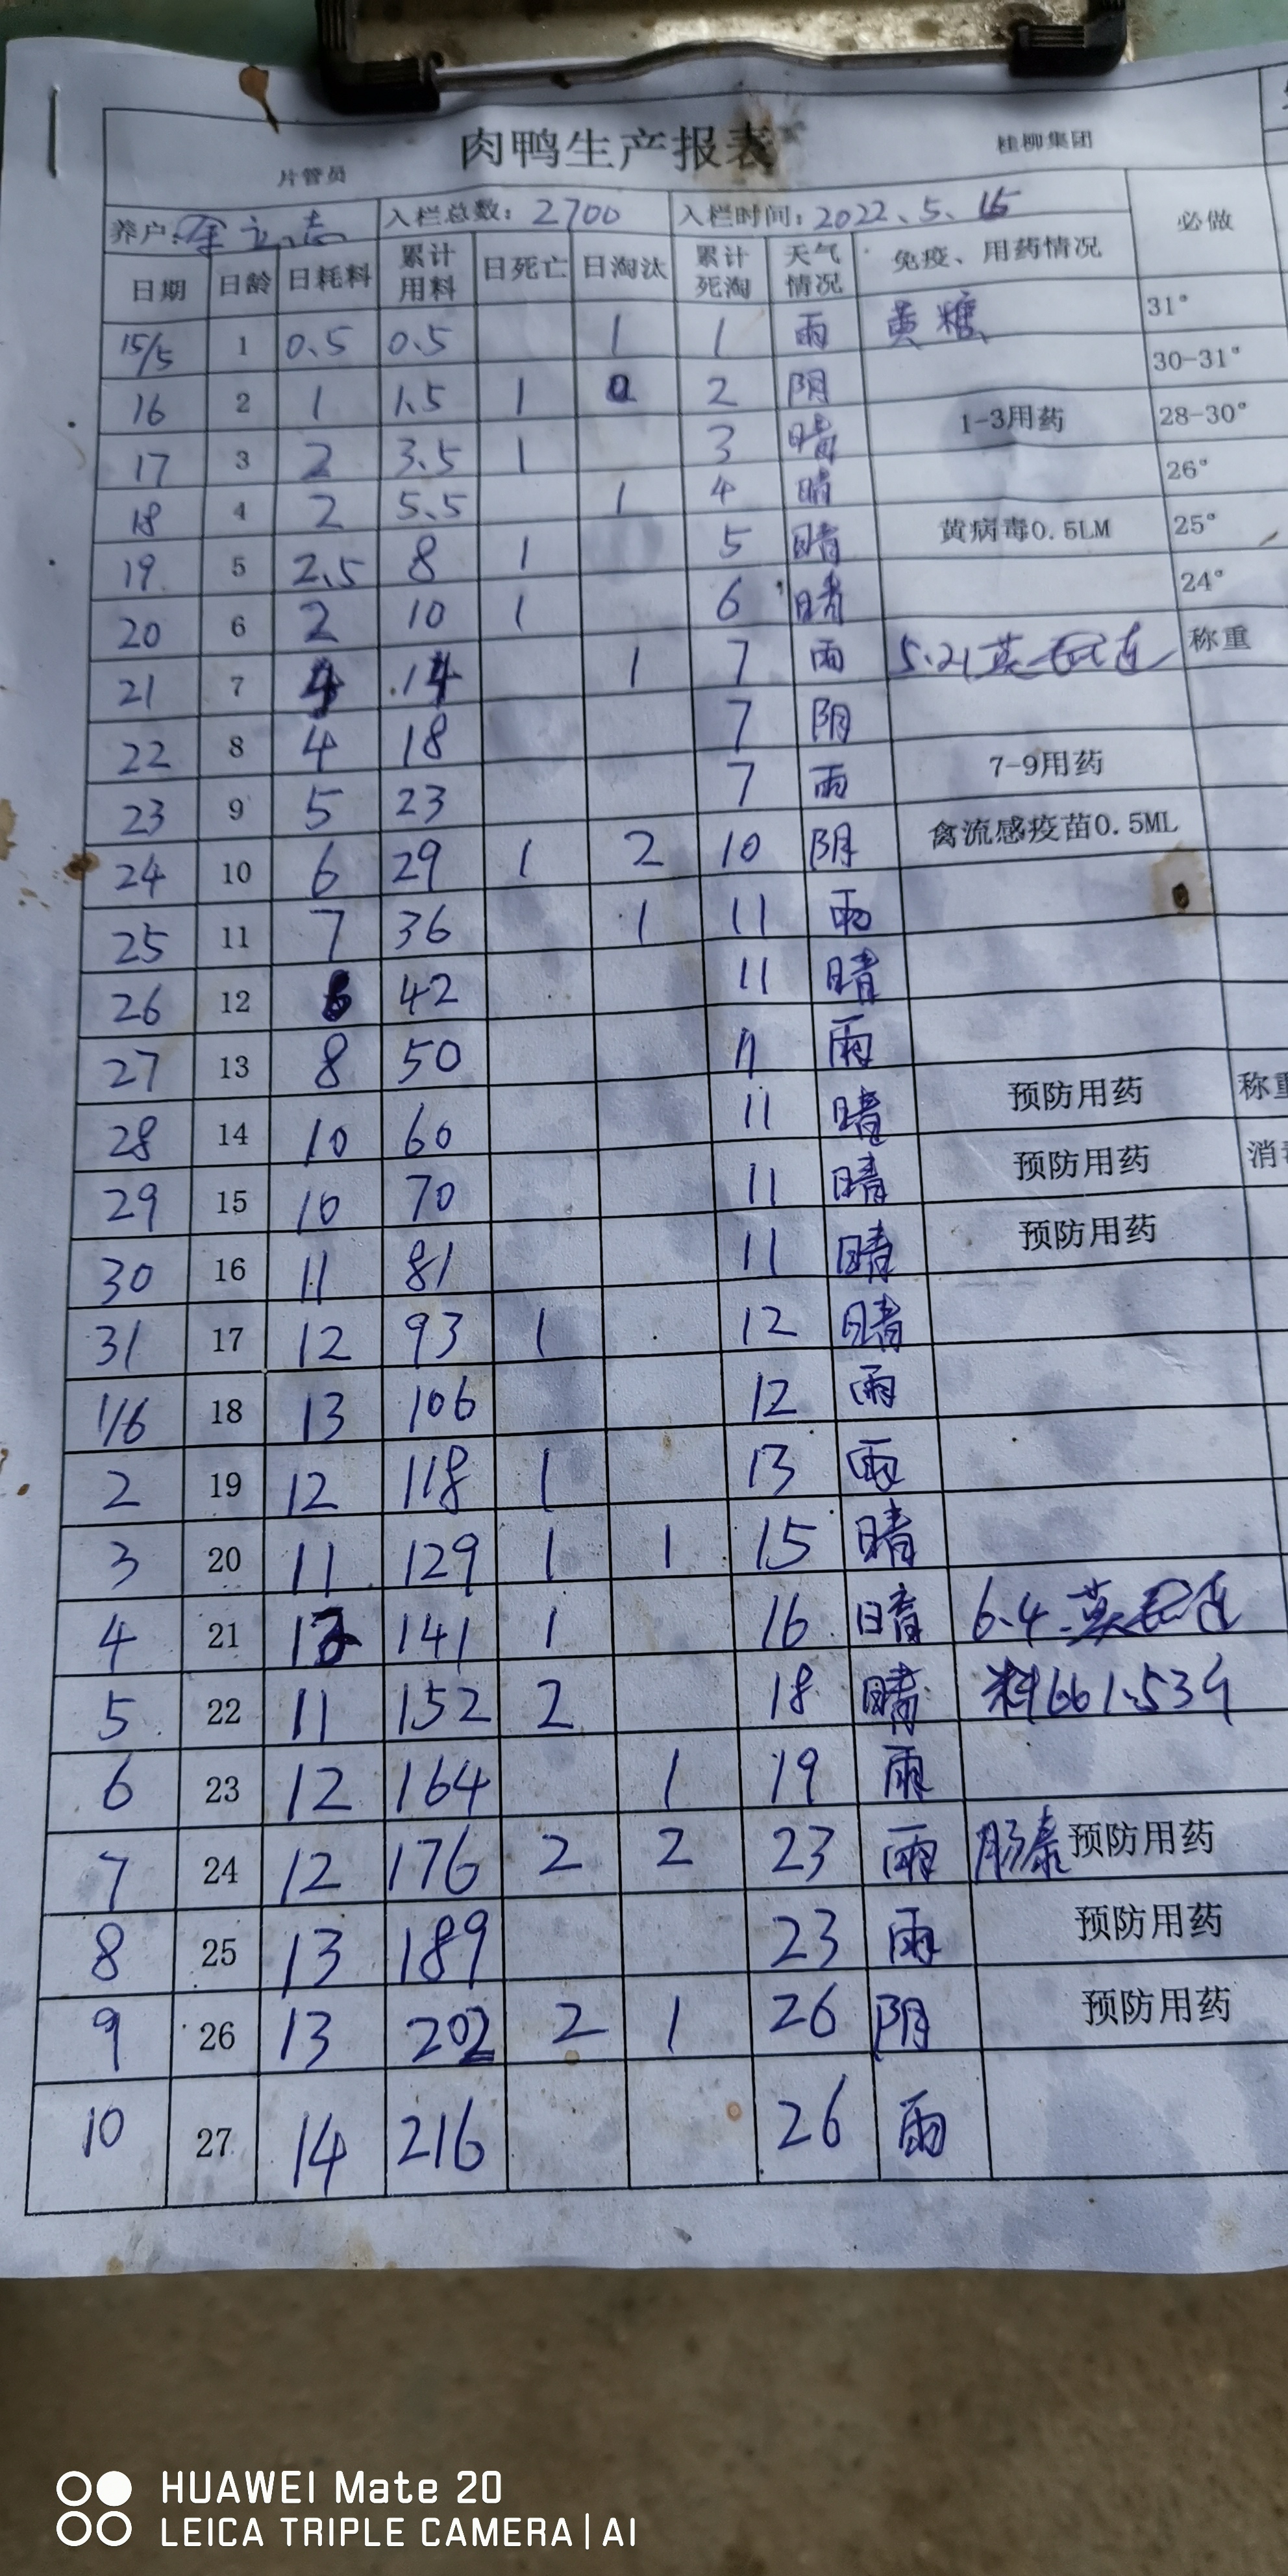 肉鸭生产报表
桂柳集团
片管员
养户: 入栏总数: 2700 入栏时间: 2022、5、15 必做
日期 日龄 日耗料 累计用料 日死亡 日淘汰 累计死淘 天气情况 免疫、用药情况
15/5 1 0.5 0.5 1 1 雨 黄糖 31°
16 2 1 1.5 1 0 2 阴 30-31°
17 3 2 3.5 1 3 晴 1-3用药 28-30°
18 4 2 5.5 1 4 晴 26°
19 5 2.5 8 1 5 晴 黄病毒0.5LM 25°
20 6 2 10 1 6 晴 24°
21 7 4 14 1 7 雨 5.21 称重
22 8 4 18 7 阴
23 9 5 23 7 雨 7-9用药
24 10 6 29 1 2 10 阴 禽流感疫苗0.5ML
25 11 7 36 1 11 雨
26 12 6 42 11 晴
27 13 8 50 11 雨
28 14 10 60 11 晴 预防用药 称重
29 15 10 70 11 晴 预防用药
30 16 11 81 11 晴 预防用药
31 17 12 93 1 12 晴
1/6 18 13 106 12 雨
2 19 12 118 1 13 雨
3 20 11 129 1 1 15 晴
4 21 12 141 1 16 晴 6.4
5 22 11 152 2 18 晴 料
6 23 12 164 1 19 雨
7 24 12 176 2 2 23 雨 肠泰 预防用药
8 25 13 189 23 雨 预防用药
9 26 13 202 2 1 26 阴 预防用药
10 27 14 216 26 雨
HUAWEI Mate 20
LEICA TRIPLE CAMERA | AI